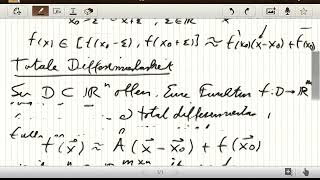 x₀-ε x₀+ε, ε∈ℝ x
f(x) ∈ [f(x₀-ε), f(x₀+ε)] ≈ f'(x₀)(x-x₀)+f(x₀)
Totale Differenzierbarkeit
Sei D ⊂ ℝⁿ offen. Eine Funktion f: D→ℝᵐ
) total differenzierbar,
falls
f(x⃗) ≈ A(x⃗ - x⃗₀) + f(x⃗₀)
1/1